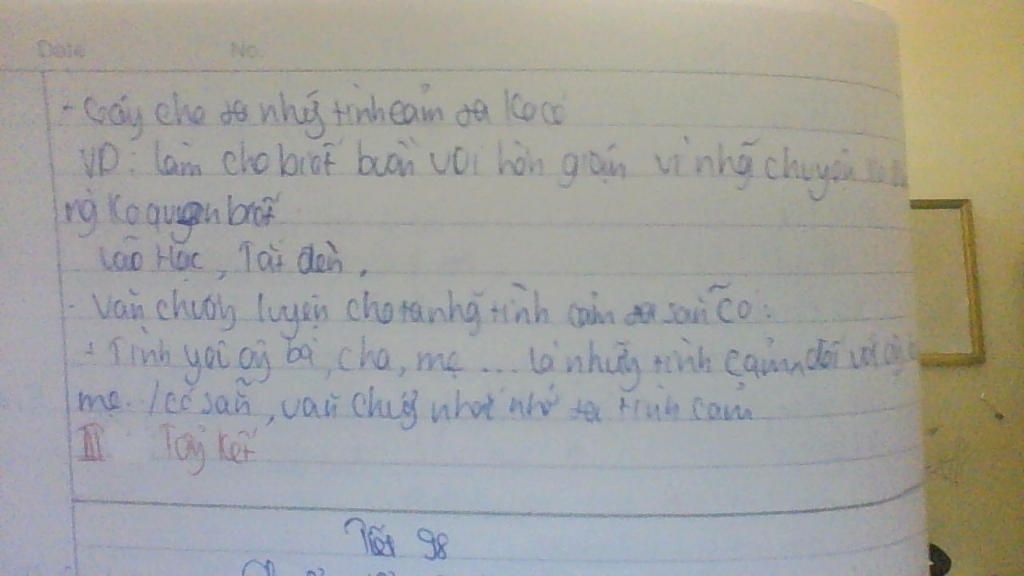 Date No.
- Gây cho ta nhữg tình cảm ta ko có
VD: làm cho biết buồn vui hờn giận vì nhữ chuyện
ng ko quen biết
Lão Hạc, Tắt đèn,
- Văn chươg luyện cho ta nhữ tình cảm ta sẵn có:
+ Tình yêu ôg bà, cha, mẹ ... là nhữg tình cảm đối với
mẹ. / có sẵn, văn chươg nhớ ta tình cảm
III Tổg kết
Tiết 98